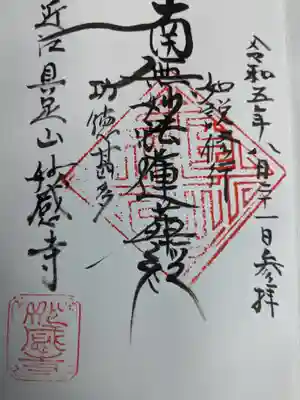 令和五年八月二十一日参拝
如説修行
南無妙法蓮華経
功徳甚多
近江具足山妙感寺
妙感寺